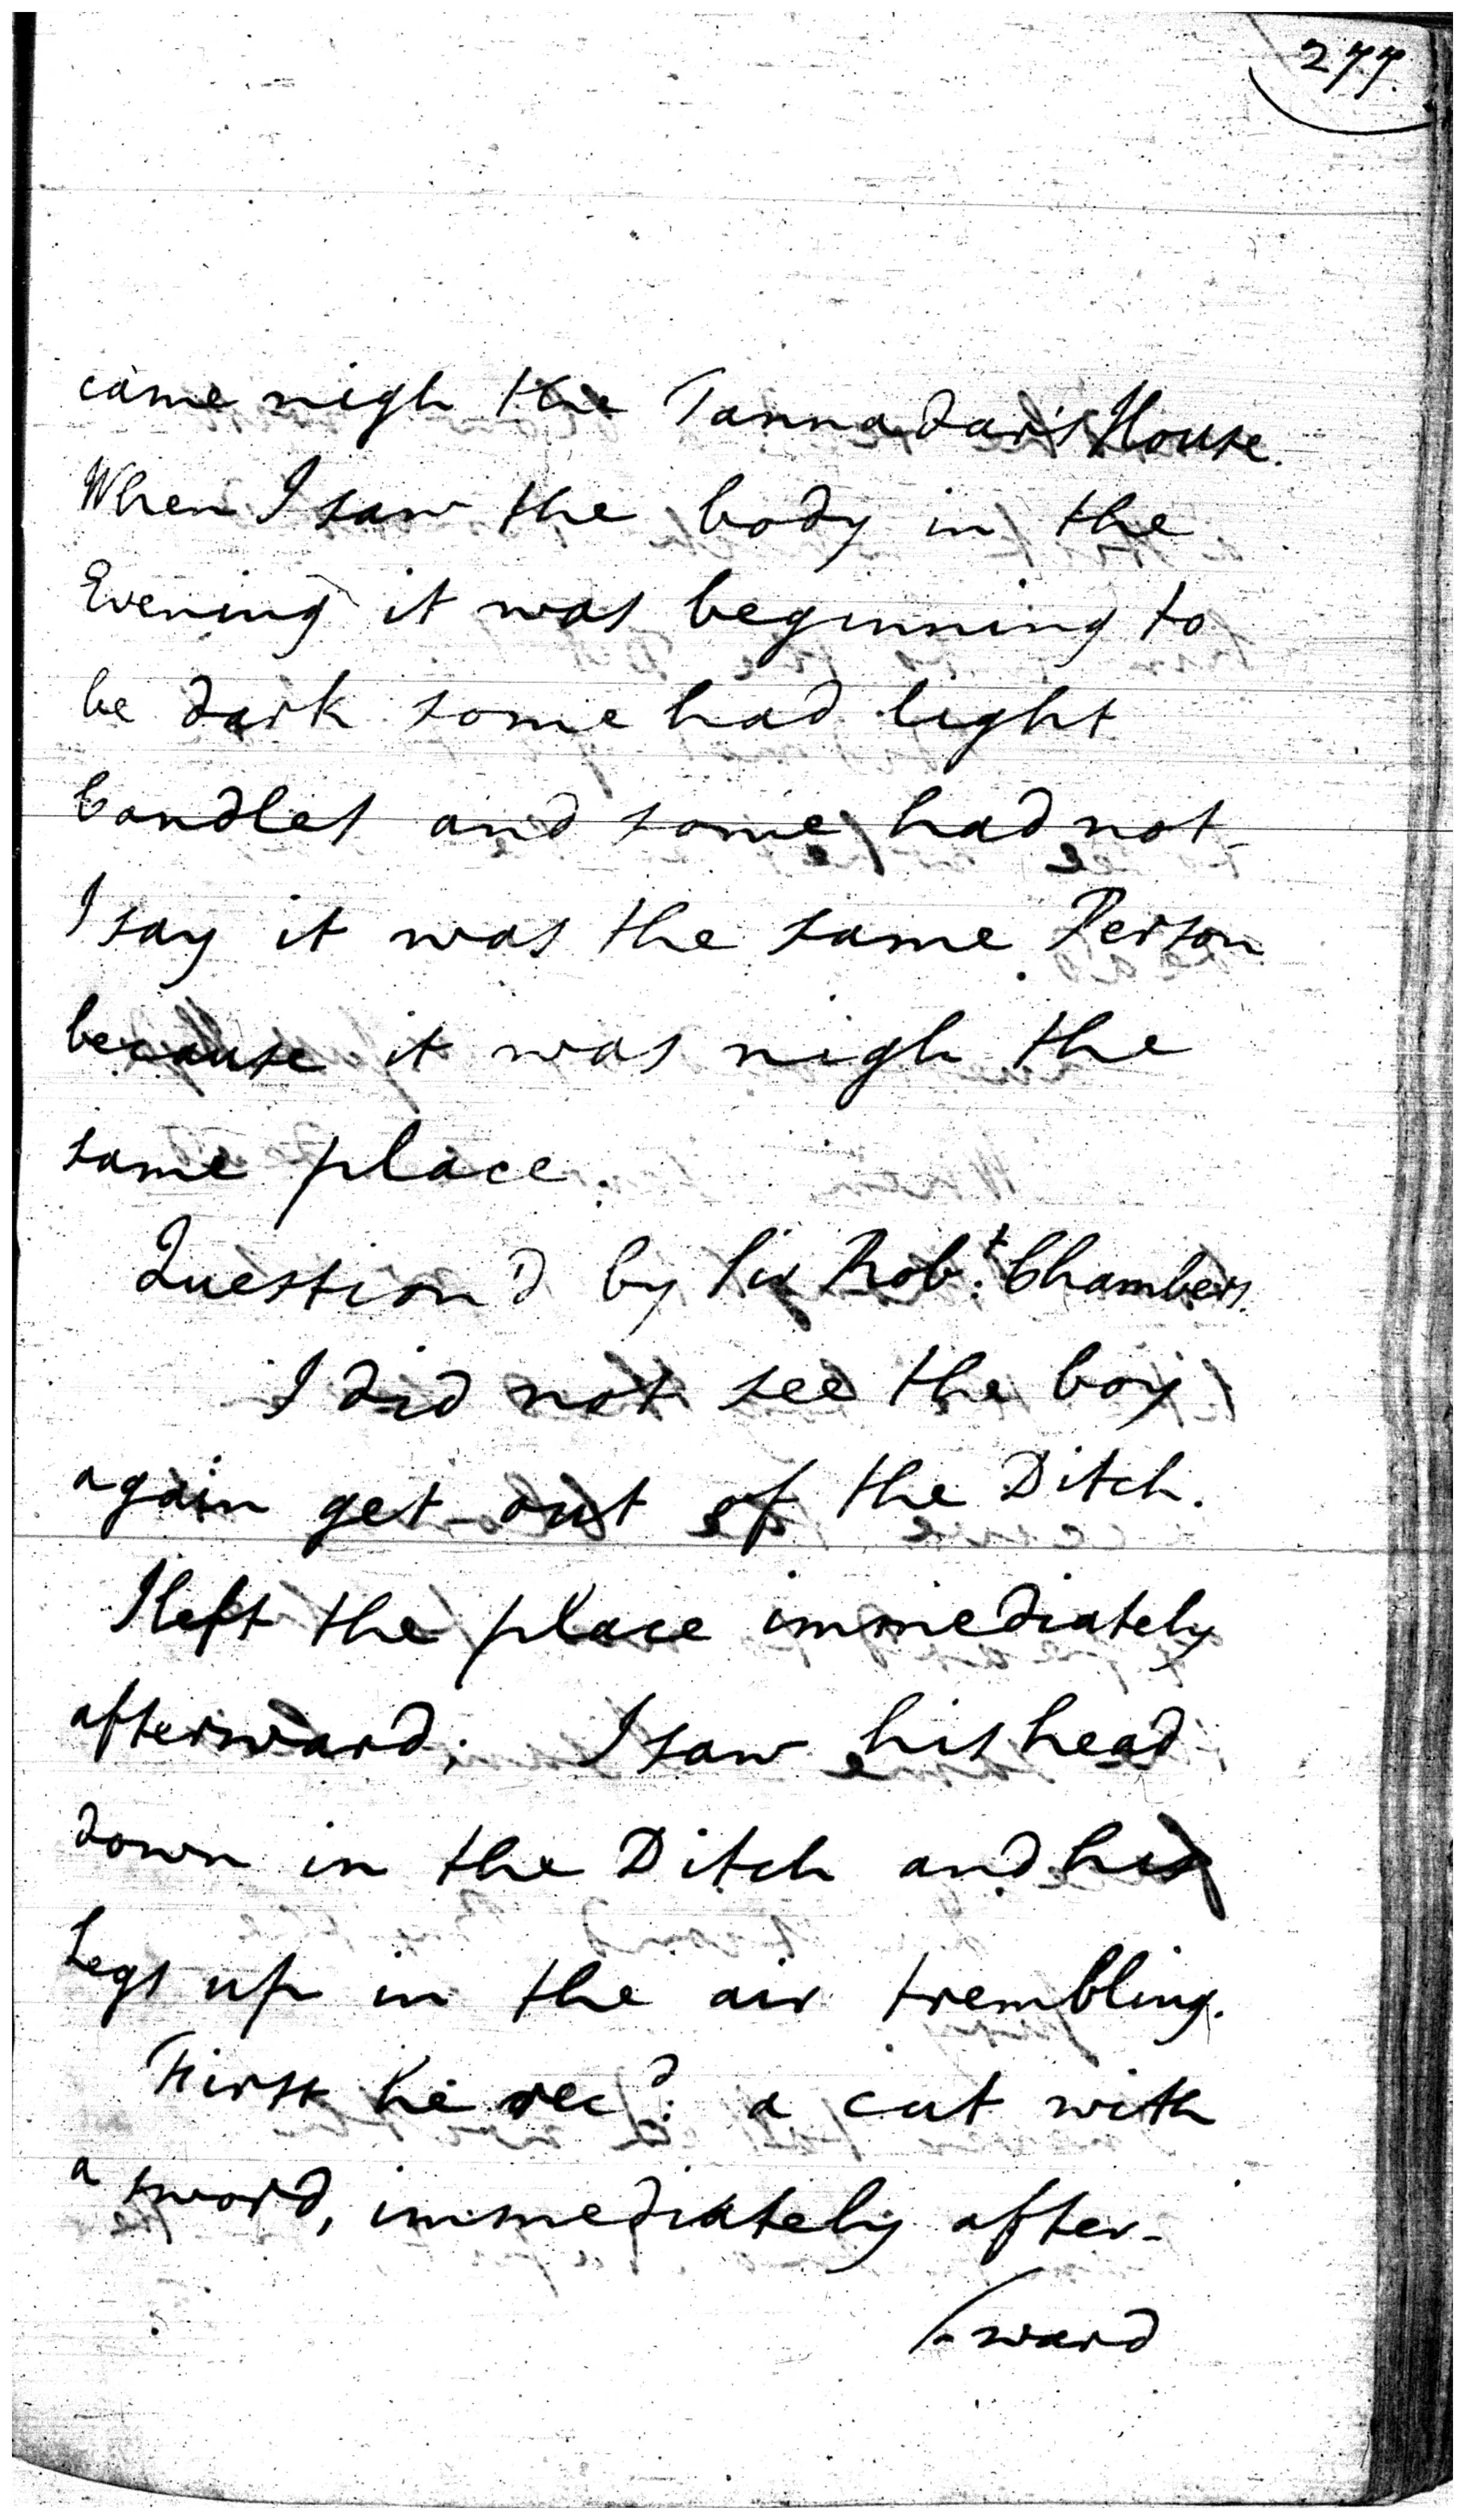 277.
came nigh the Tannadar's House.
When I saw the body in the
Evening it was beginning to
be dark some had light
Candles and some had not
I say it was the same Person
because it was nigh the
same place.
Question'd by Sir Robt. Chambers.
I did not see the boy
again get out of the Ditch.
I left the place immediately
afterward; I saw his head
down in the Ditch and his
Legs up in the air trembling.
First he recd. a cut with
a sword, immediately after-
-ward